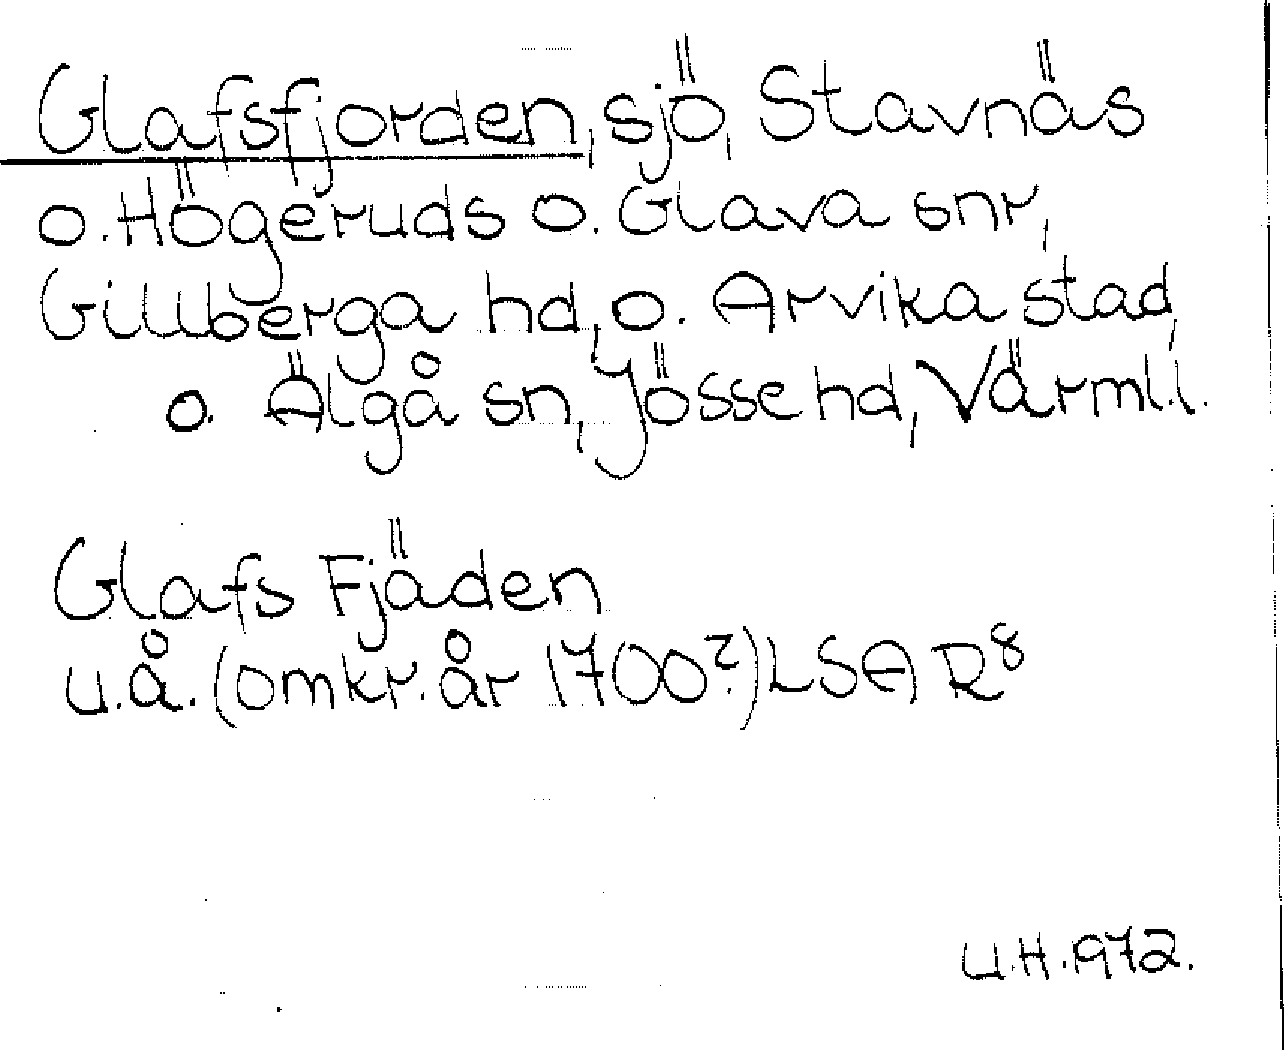 Glafsfjorden, sjö, Stavnäs
o. Högeruds o. Glava snr,
Gillberga hd, o. Arvika stad,
o. Älgå sn, Jösse hd, Värml.l.
Glafs Fjäden
u.å. (omkr. år 1700?) LSA R⁸
U.H. 972.